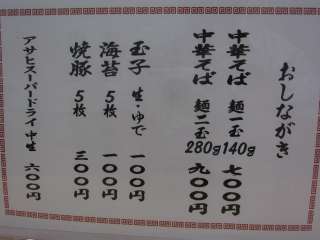 おしながき
中華そば 麺一玉 140g 七〇〇円
中華そば 麺二玉 280g 九〇〇円
玉子 生・ゆで 一〇〇円
海苔 5枚 一〇〇円
焼豚 5枚 三〇〇円
アサヒスーパードライ 中生 六〇〇円